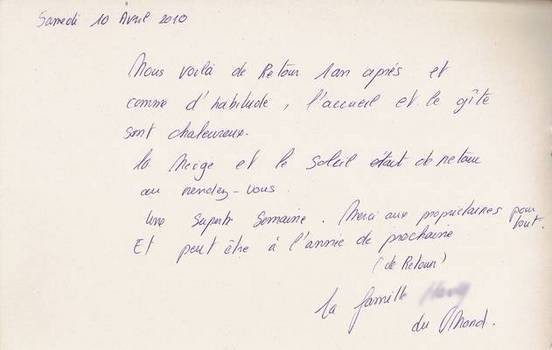 Samedi 10 Avril 2010
Nous voilà de Retour 1an après et
comme d'habitude, l'accueil et le gîte
sont chaleureux.
la Neige et le soleil était de retour
au rendez-vous.
Une superbe semaine. Merci aux propriétaires pour tout.
Et peut être à l'année de prochaine
(de Retour)
La famille
du Mond.